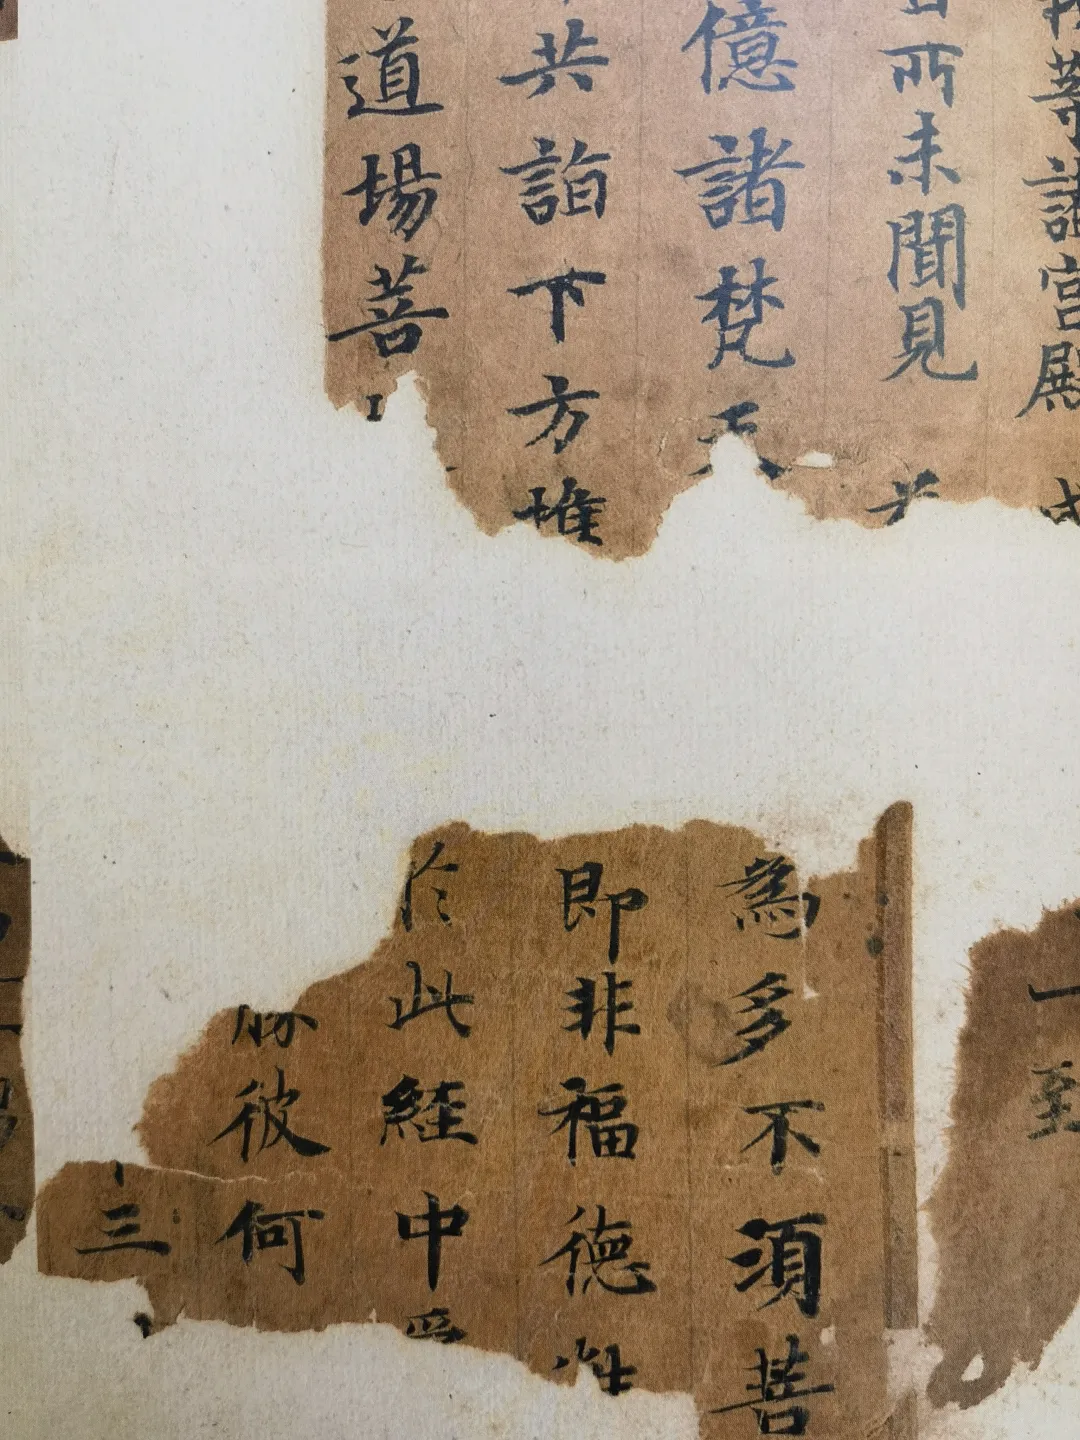 等諸宮殿
所未聞見
億諸梵天
共詣下方推
道場菩
一至
為多不須菩
即非福德性
於此經中受
勝彼何
三